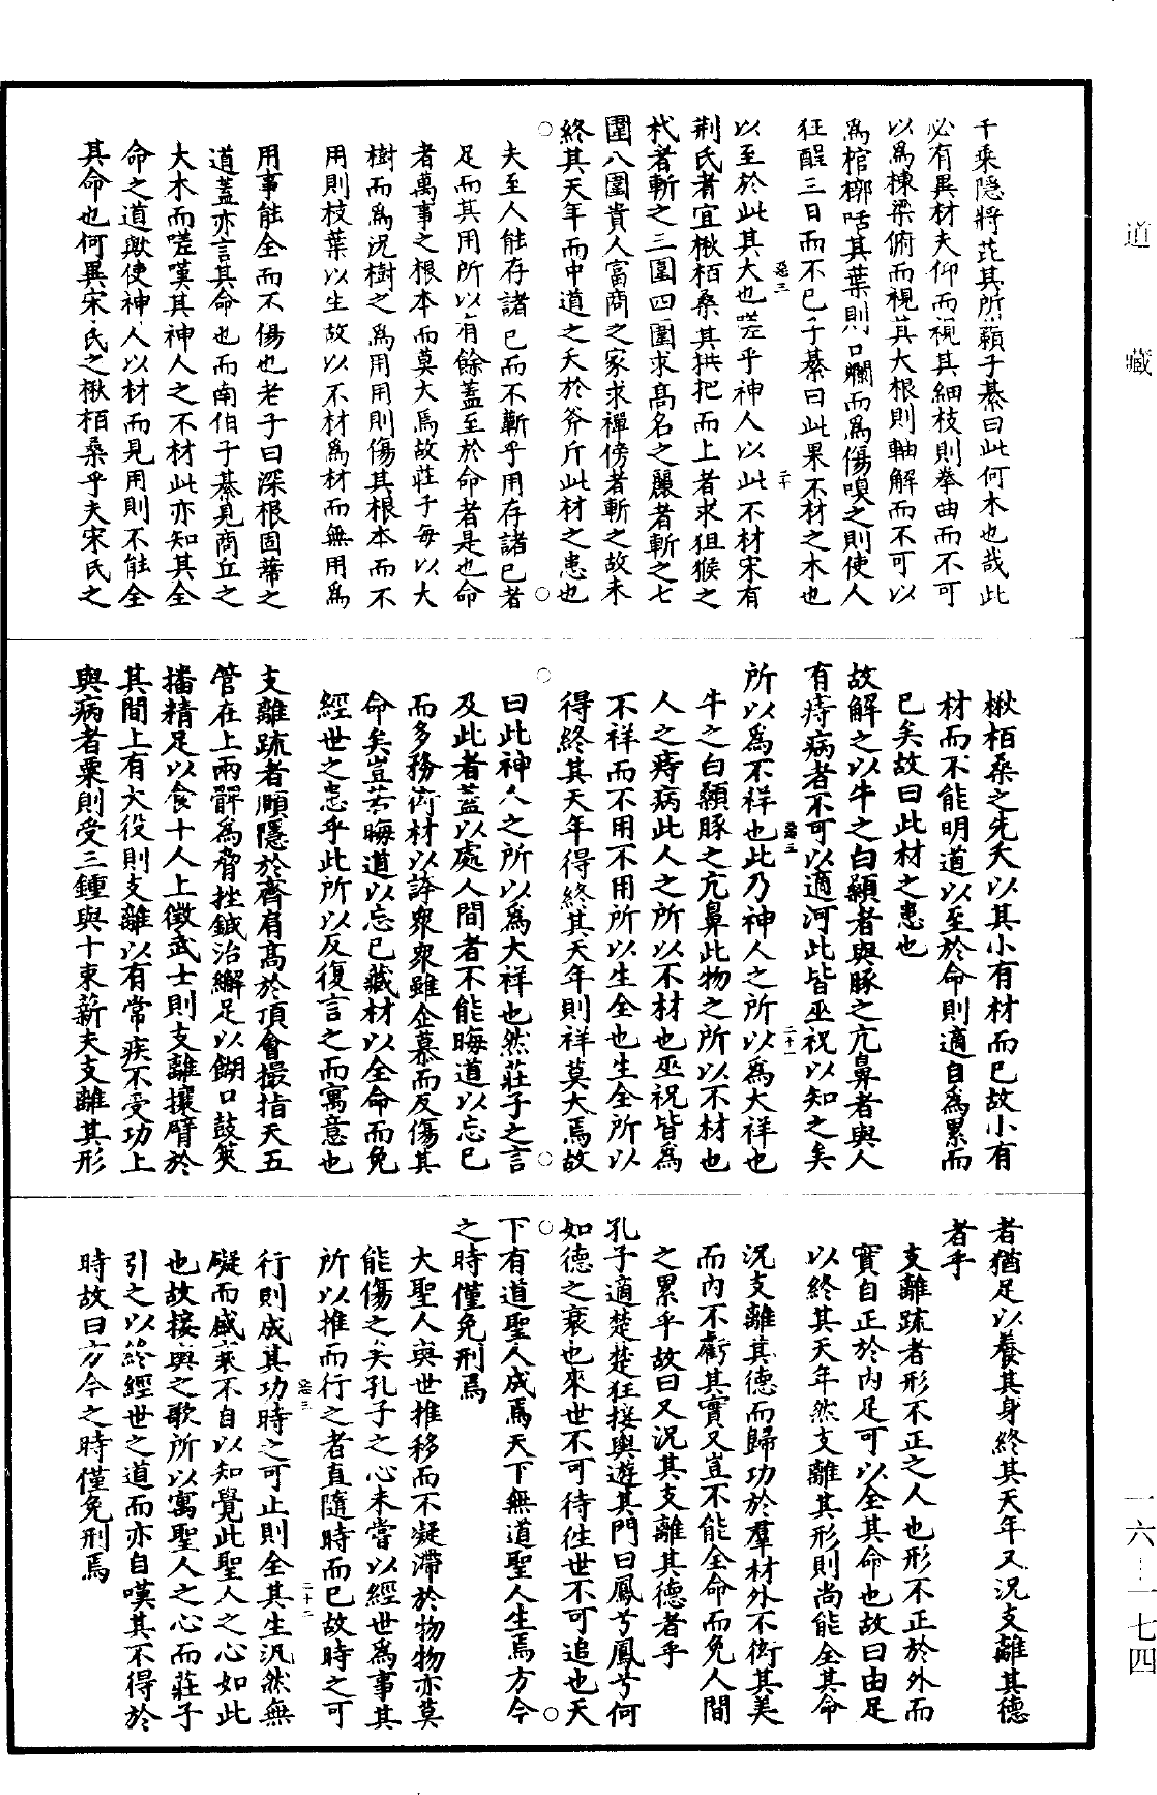 道藏
千乘隱將芘其所藾子綦曰此何木也哉此
必有異材夫仰而視其細枝則拳曲而不可
以爲棟梁俯而視其大根則軸解而不可以
爲棺槨咶其葉則口爛而爲傷嗅之則使人
狂酲三日而不已子綦曰此果不材之木也
以至於此其大也嗟乎神人以此不材宋有
荆氏者宜楸栢桑其拱把而上者求狙猴之
杙者斬之三圍四圍求髙名之麗者斬之七
圍八圍貴人富商之家求禪傍者斬之故未
終其天年而中道之夭於斧斤此材之患也
夫至人能存諸已而不蘄乎用存諸已者
足而其用所以有餘蓋至於命者是也命
者萬事之根本而莫大焉故莊子每以大
樹而爲況樹之爲用用則傷其根本而不
用則枝葉以生故以不材爲材而無用爲
用事能全而不傷也老子曰深根固蔕之
道蓋亦言其命也而南伯子綦見商丘之
大木而嗟嘆其神人之不材此亦知其全
命之道歟使神人以材而見用則不能全
其命也何異宋氏之楸栢桑乎夫宋氏之
楸栢桑之先夭以其小有材而已故小有
材而不能明道以至於命則適自爲累而
已矣故曰此材之患也
故解之以牛之白顙者與豚之亢鼻者與人
有痔病者不可以適河此皆巫祝以知之矣
所以爲不祥也此乃神人之所以爲大祥也
牛之白顙豚之亢鼻此物之所以不材也
人之痔病此人之所以不材也巫祝皆爲
不祥而不用不用所以生全也生全所以
得終其天年得終其天年則祥莫大焉故
曰此神人之所以爲大祥也然莊子之言
及此者蓋以處人間者不能晦道以忘已
而多務衒材以誇衆衆雖企慕而反傷其
命矣豈若晦道以忘已藏材以全命而免
經世之患乎此所以反復言之而寓意也
支離疏者頤隱於齊肩髙於頂會撮指天五
管在上兩髀爲脅挫鍼治繲足以餬口鼓筴
播精足以食十人上徵武士則支離攘臂於
其間上有大役則支離以有常疾不受功上
與病者粟則受三鍾與十束薪夫支離其形
者猶足以養其身終其天年又況支離其德
者乎
支離疏者形不正之人也形不正於外而
實自正於內足可以全其命也故曰由足
以終其天年然支離其形則尚能全其命
況支離其德而歸功於羣材外不衒其美
而內不虧其實又豈不能全命而免人間
之累乎故曰又況其支離其德者乎
孔子適楚楚狂接輿遊其門曰鳳兮鳳兮何
如德之衰也來世不可待徃世不可追也天
下有道聖人成焉天下無道聖人生焉方今
之時僅免刑焉
大聖人與世推移而不凝滯於物物亦莫
能傷之矣孔子之心未嘗以經世爲事其
所以推而行之者直隨時而已故時之可
行則成其功時之可止則全其生汎然無
礙而盛衰不自以知覺此聖人之心如此
也故接輿之歌所以寓聖人之心而莊子
引之以終經世之道而亦自嘆其不得於
時故曰方今之時僅免刑焉
一六—一七四